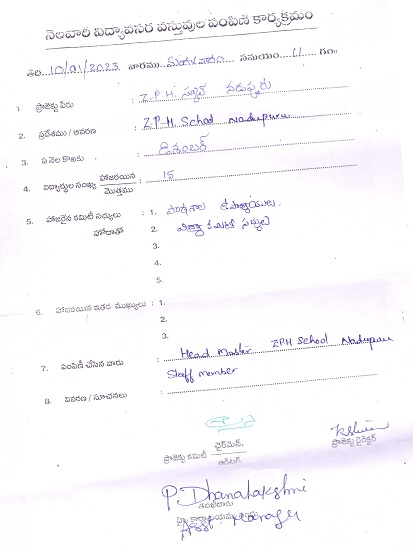 నెలవారి విద్యావసర వస్తువుల పంపిణి కార్యక్రమం
తేది. 10/01/2023 వారము.. మంగళవారం సమయం. 11 గం॥
1. ప్రాజెక్టు పేరు : Z.P.H. స్కూల్ నడుపూరు
2. ప్రదేశము / ఆవరణ : Z.P.H. School Nadupuru
3. ఏ నెల కొఱకు : డిశంబర్
4. విద్యార్థుల సంఖ్య హాజరయిన / మొత్తము : 15
5. హాజరైన కమిటీ సభ్యులు : 1. పాఠశాల ఉపాధ్యాయులు.
హోదాతో 2. విద్యా కమిటీ సభ్యులు
3.
4.
5.
6. హాజరయిన ఇతర ముఖ్యులు : 1.
2.
3.
7. పంపిణీ చేసిన వారు : Head Master ZPH School Nadupuru
Staff member
8. వివరణ / సూచనలు :
ప్రాజెక్టు కమిటీ ఛైర్‌మెన్.
ప్రాజెక్టు డైరెక్టర్
P. Dhanalakshmi
Asst Manager